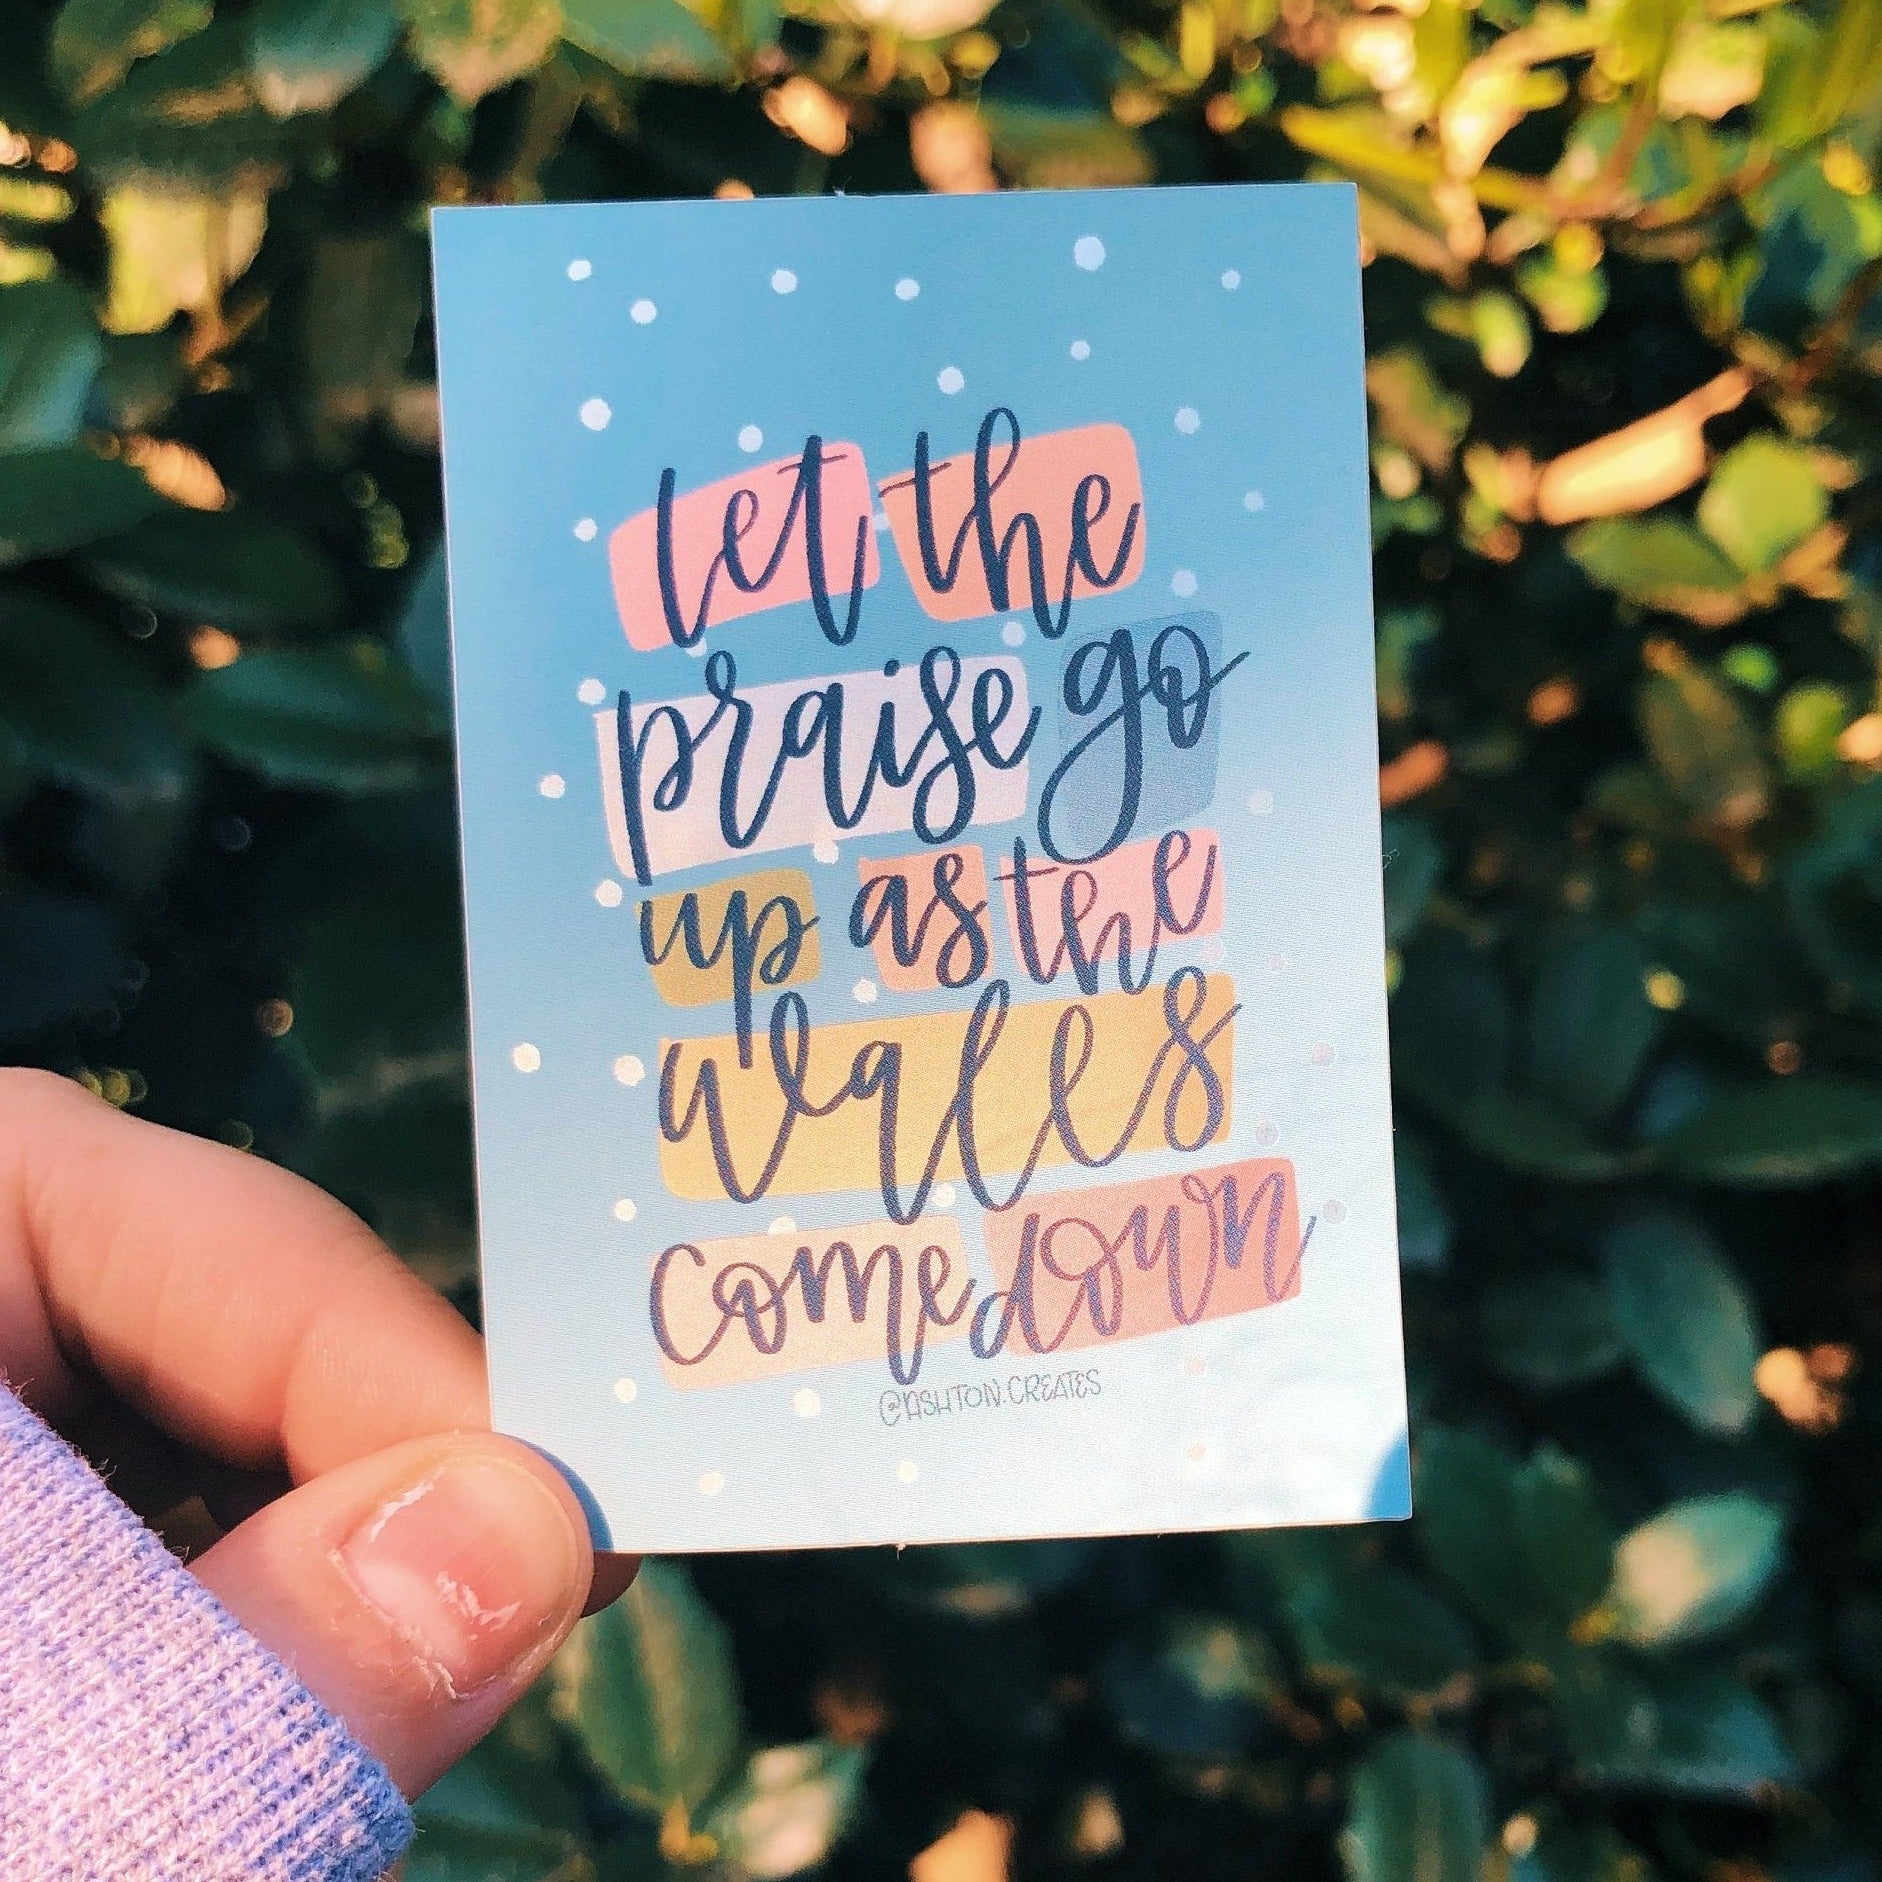 let the
praise go
up as the
walls
come down
@ASHTON.CREATES